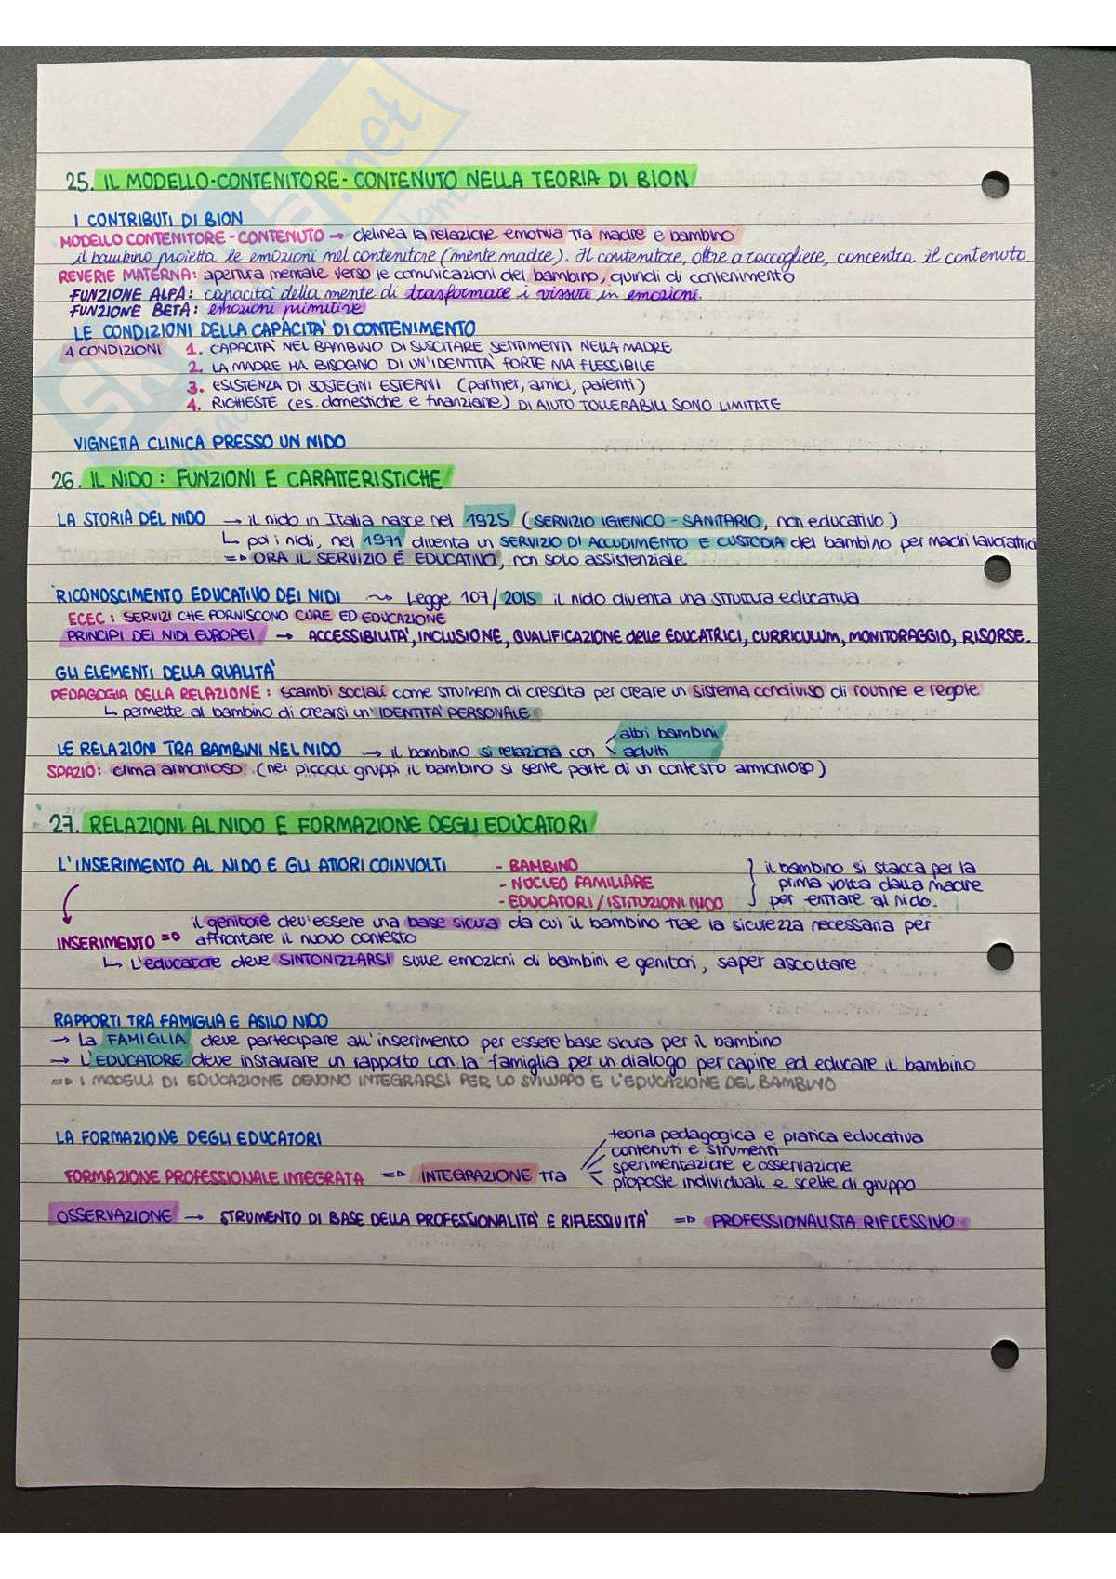 25. IL MODELLO-CONTENITORE-CONTENUTO NELLA TEORIA DI BION
I CONTRIBUTI DI BION
MODELLO CONTENITORE-CONTENUTO → delinea la relazione emotiva tra madre e bambino
il bambino proietta le emozioni nel contenitore (mente madre). Il contenitore, oltre a raccogliere, concentra il contenuto
REVERIE MATERNA: apertura mentale verso le comunicazioni del bambino, quindi di contenimento
FUNZIONE ALFA: capacità della mente di trasformare i vissuti in emozioni.
FUNZIONE BETA: emozioni primitive
LE CONDIZIONI DELLA CAPACITA' DI CONTENIMENTO
4 CONDIZIONI 1. CAPACITA' NEL BAMBINO DI SUSCITARE SENTIMENTI NELLA MADRE
2. LA MADRE HA BISOGNO DI UN'IDENTITA' FORTE MA FLESSIBILE
3. ESISTENZA DI SOSTEGNI ESTERNI (partner, amici, parenti)
4. RICHIESTE (es. domestiche e finanziarie) DI AIUTO TOLLERABILI SONO LIMITATE
VIGNETTA CLINICA PRESSO UN NIDO
26. IL NIDO: FUNZIONI E CARATTERISTICHE
LA STORIA DEL NIDO → il nido in Italia nasce nel 1925 (SERVIZIO IGIENICO-SANITARIO, non educativo)
↳ poi i nidi, nel 1971 diventa un SERVIZIO DI ACCUDIMENTO E CUSTODIA del bambino per madri lavoratrici
=> ORA IL SERVIZIO È EDUCATIVO, non solo assistenziale.
RICONOSCIMENTO EDUCATIVO DEI NIDI ~> Legge 107/2015 il nido diventa una struttura educativa
ECEC: SERVIZI CHE FORNISCONO CURE ED EDUCAZIONE
PRINCIPI DEI NIDI EUROPEI → ACCESSIBILITA', INCLUSIONE, QUALIFICAZIONE delle EDUCATRICI, CURRICULUM, MONITORAGGIO, RISORSE.
GLI ELEMENTI DELLA QUALITA'
PEDAGOGIA DELLA RELAZIONE: scambi sociali come strumenti di crescita per creare un sistema condiviso di routine e regole
↳ permette al bambino di crearsi un'IDENTITA' PERSONALE
LE RELAZIONI TRA BAMBINI NEL NIDO → il bambino si relaziona con altri bambini
adulti
SPAZIO: clima armonioso (nei piccoli gruppi il bambino si sente parte di un contesto armonioso)
27. RELAZIONI AL NIDO E FORMAZIONE DEGLI EDUCATORI
L'INSERIMENTO AL NIDO E GLI ATTORI COINVOLTI - BAMBINO
- NUCLEO FAMILIARE
- EDUCATORI / ISTITUZIONI NIDO
} il bambino si stacca per la
prima volta dalla madre
per entrare al nido.
INSERIMENTO => il genitore dev'essere una base sicura da cui il bambino trae la sicurezza necessaria per
affrontare il nuovo contesto
↳ L'educatore deve SINTONIZZARSI sulle emozioni di bambini e genitori, saper ascoltare
RAPPORTI TRA FAMIGLIA E ASILO NIDO
→ La FAMIGLIA deve partecipare all'inserimento per essere base sicura per il bambino
→ L'EDUCATORE deve instaurare un rapporto con la famiglia per un dialogo per capire ed educare il bambino
=> I MODELLI DI EDUCAZIONE DEVONO INTEGRARSI PER LO SVILUPPO E L'EDUCAZIONE DEL BAMBINO
LA FORMAZIONE DEGLI EDUCATORI
FORMAZIONE PROFESSIONALE INTEGRATA => INTEGRAZIONE tra teoria pedagogica e pratica educativa
contenuti e strumenti
sperimentazione e osservazione
proposte individuali e scelte di gruppo
OSSERVAZIONE → STRUMENTO DI BASE DELLA PROFESSIONALITA' E RIFLESSIVITA' => PROFESSIONALISTA RIFLESSIVO